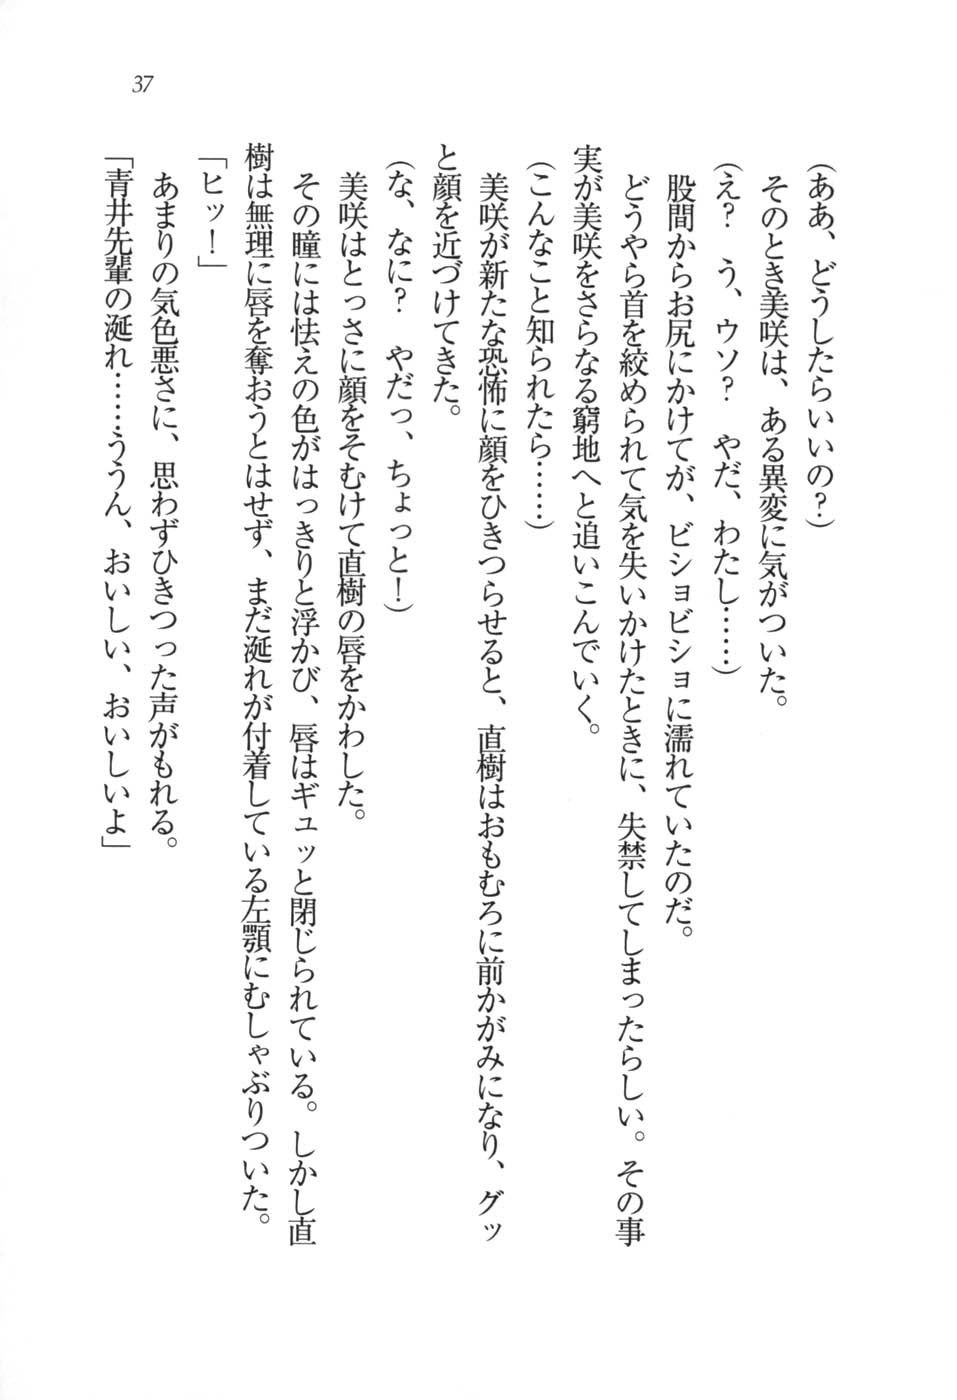 37
（ああ、どうしたらいいの？）
そのとき美咲は、ある異変に気がついた。
（え？　う、ウソ？　やだ、わたし……）
股間からお尻にかけてが、ビショビショに濡れていたのだ。
どうやら首を絞められて気を失いかけたときに、失禁してしまったらしい。その事
実が美咲をさらなる窮地へと追いこんでいく。
（こんなこと知られたら……）
美咲が新たな恐怖に顔をひきつらせると、直樹はおもむろに前かがみになり、グッ
と顔を近づけてきた。
（な、なに？　やだっ、ちょっと！）
美咲はとっさに顔をそむけて直樹の唇をかわした。
その瞳には怯えの色がはっきりと浮かび、唇はギュッと閉じられている。しかし直
樹は無理に唇を奪おうとはせず、まだ涎れが付着している左顎にむしゃぶりついた。
「ヒッ！」
あまりの気色悪さに、思わずひきつった声がもれる。
「青井先輩の涎れ……ううん、おいしい、おいしいよ」